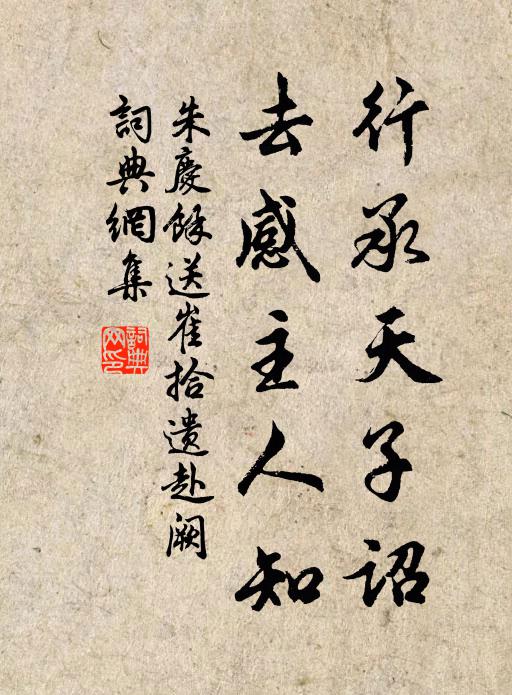 行承天子詔
去感主人知
朱慶餘送崔拾遺赴闕
詞典網集
詞典網印